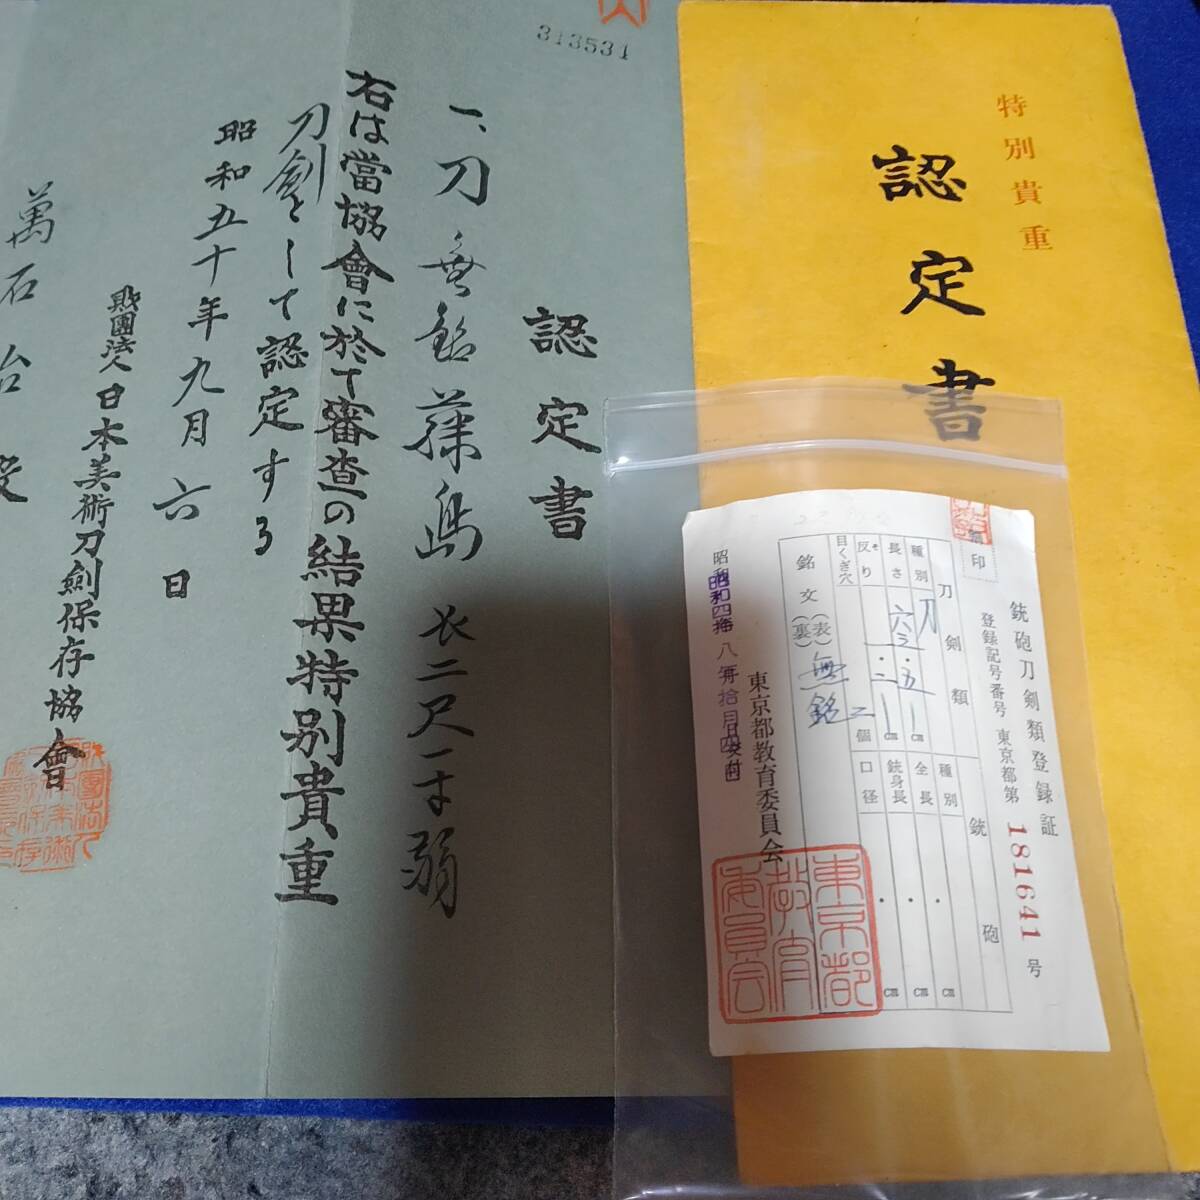 特別貴重
認定書
313531
認定書
一、刀 無銘 藤島 长二尺一寸弱
右は當協會に於て審査の結果特別貴重
刀劍として認定する
昭和五十年九月六日
財團法人日本美術刀劍保存協會
萬石
銃砲刀剣類登録証
登録記号番号 東京都第181641号
刀剣類
銃砲
種別 刀
長さ 六三・五cm
反り cm
目くぎ穴 二個
種別
全長 ・ cm
銃身長 ・ cm
口径 ・ cm
銘文(表)無銘
(裏)
東京都教育委員会
東京都教育委員会